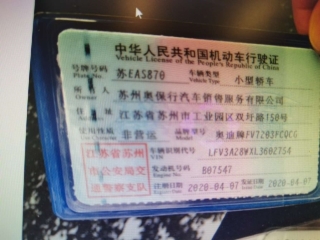 中华人民共和国机动车行驶证
Vehicle License of the People's Republic of China
号牌号码 苏EAS870 车辆类型 小型轿车
Plate No. Vehicle Type
所有人 苏州奥保行汽车销售服务有限公司
Owner
住址 江苏省苏州市工业园区双圩路150号
使用性质 非营运 品牌型号 奥迪牌FV7203FCQCG
江苏省苏州市公安局交通警察支队
车辆识别代号
VIN
发动机号码 B07547
Engine No.
注册日期 2020-04-07 发证日期 2020-04-07